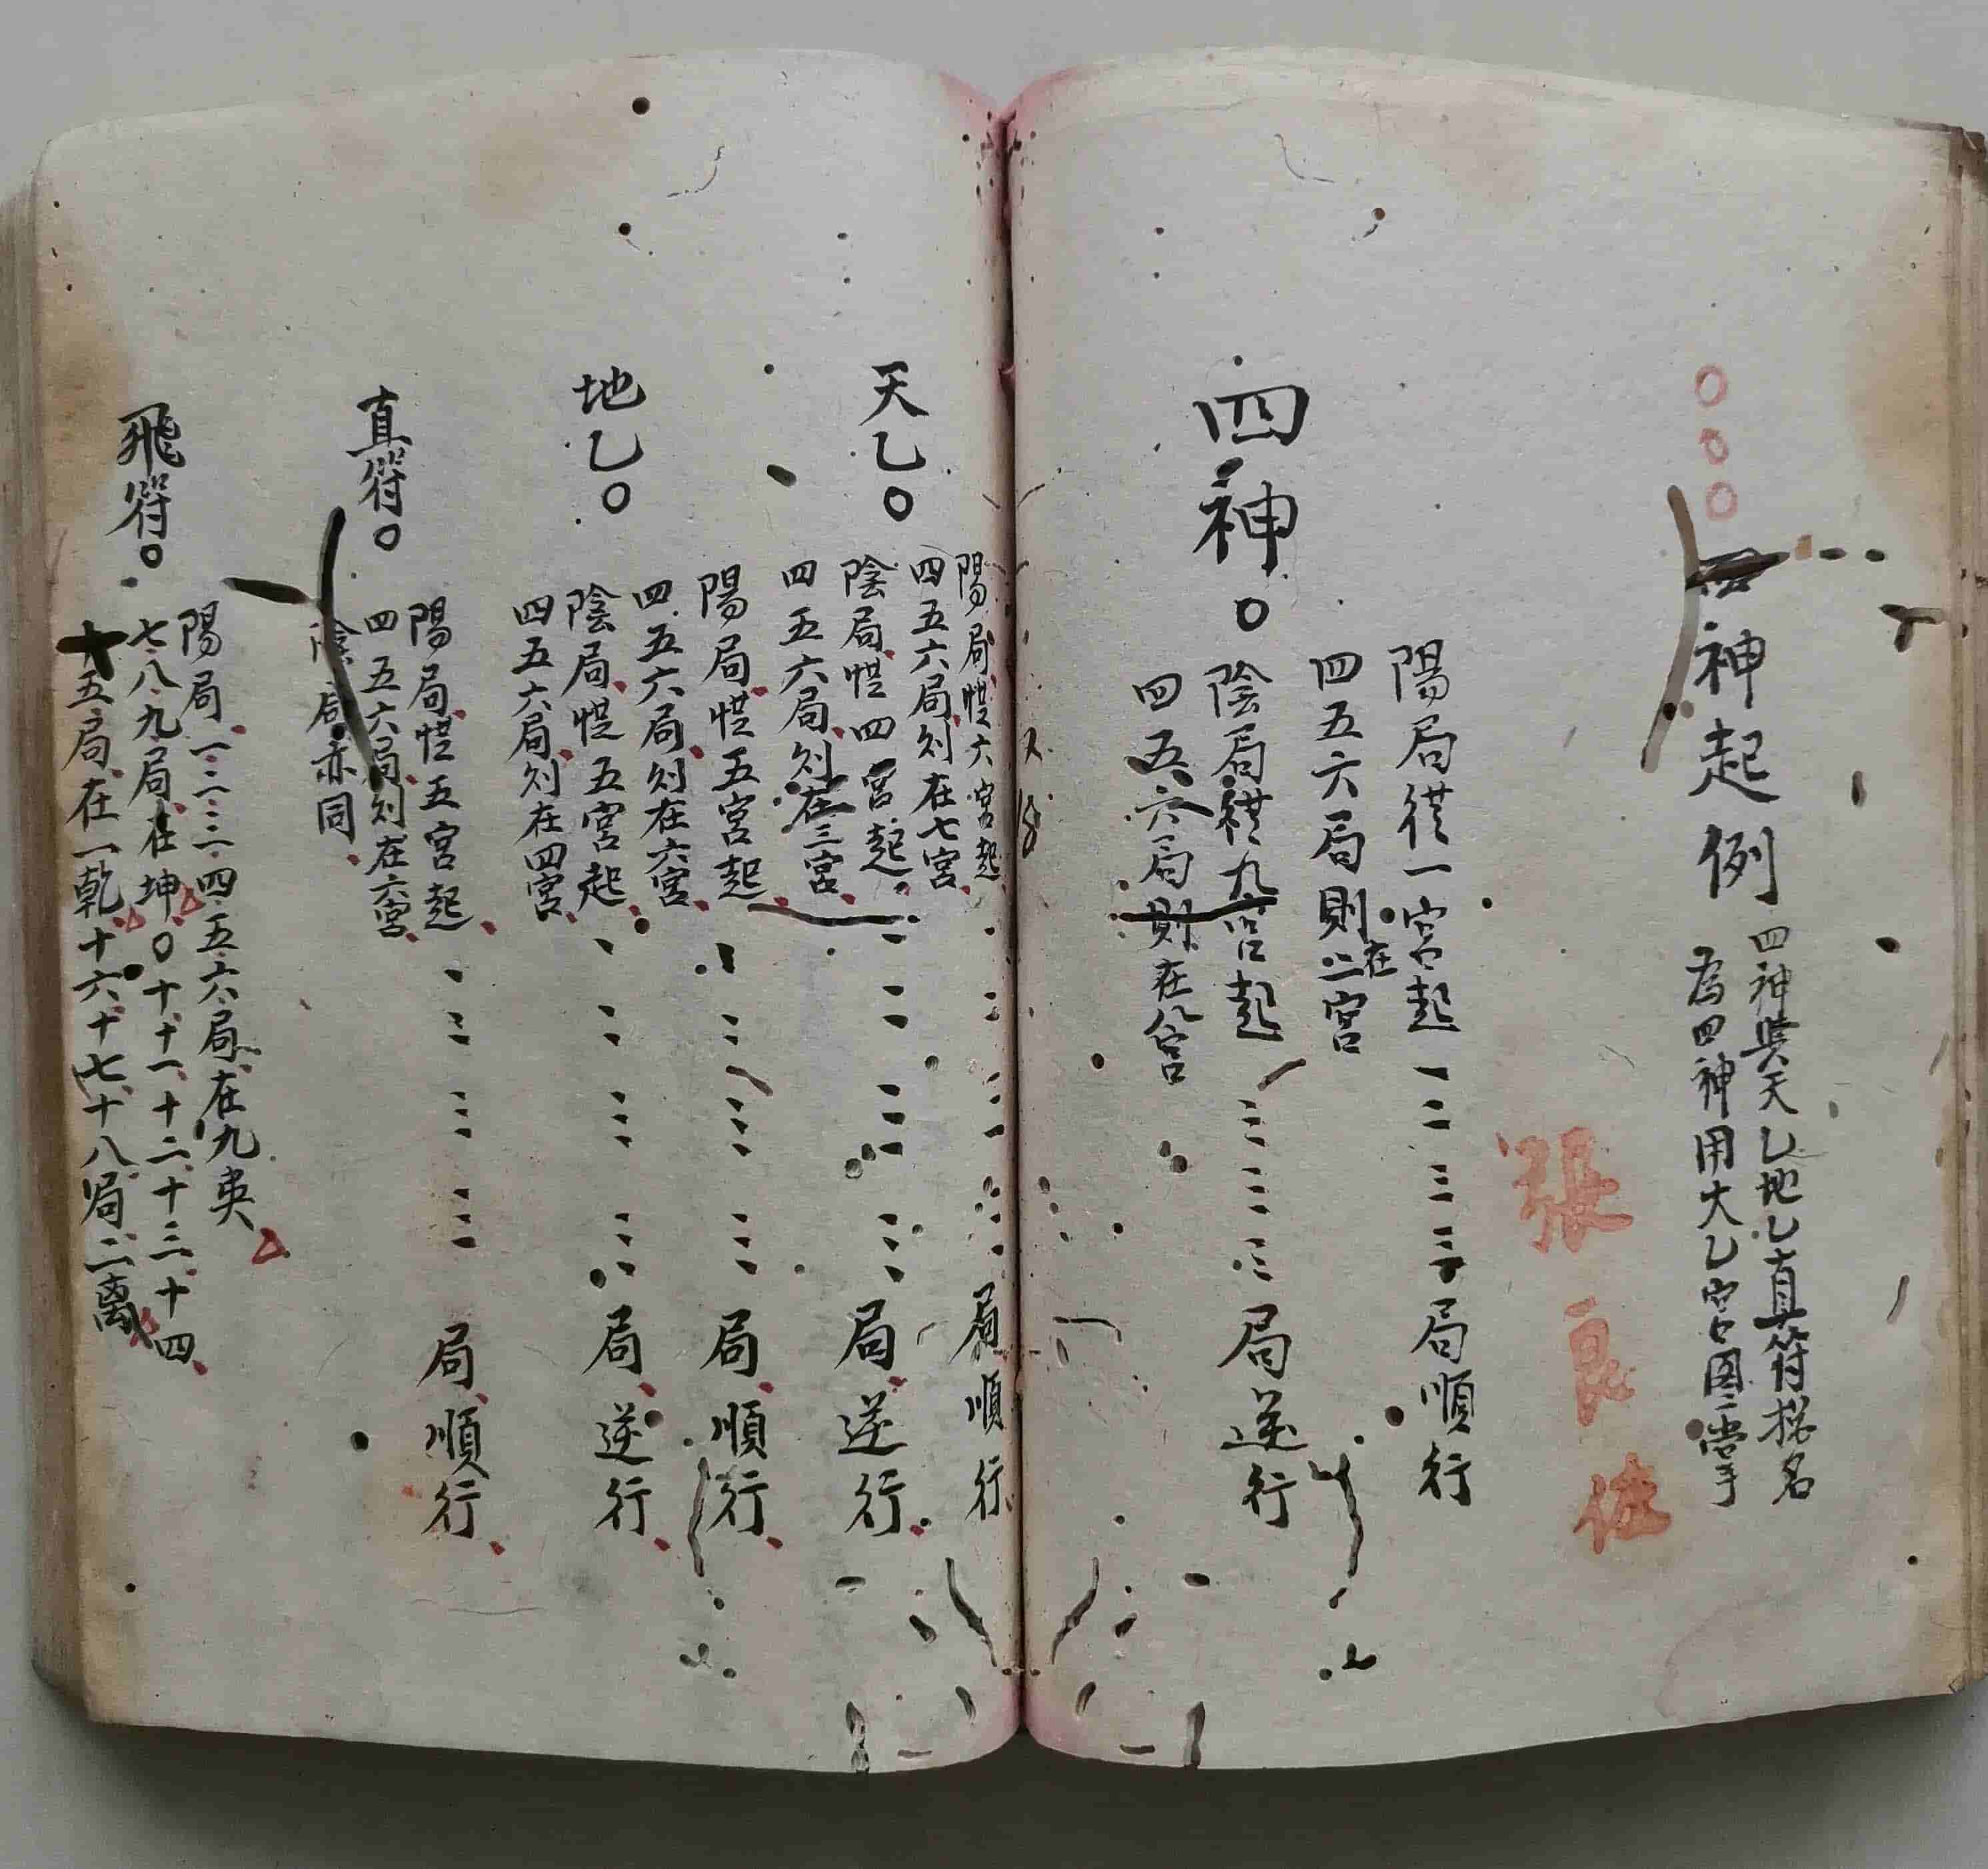 四神起例
四神與天乙地乙真符揔名
為四神用大乙宮圖掌
張良佐
四神○
陽局從一宮起一二三三局順行
四五六局則在二宮
陰局從九宮起三三三局逆行
四五六局則在八宮
天乙○
陽局從六宮起 局順行
四五六局則在七宮
陰局從四宮起 局逆行
四五六局則在三宮
地乙○
陽局從五宮起 局順行
四五六局則在六宮
陰局從五宮起 局逆行
四五六局則在四宮
真符○
陽局從五宮起 局順行
四五六局則在六宮
陰局亦同
飛符○
陽局一二三四五六局在九
七八九局在坤○十十一十二十三十四
十五局在一乾十六十七十八局二离